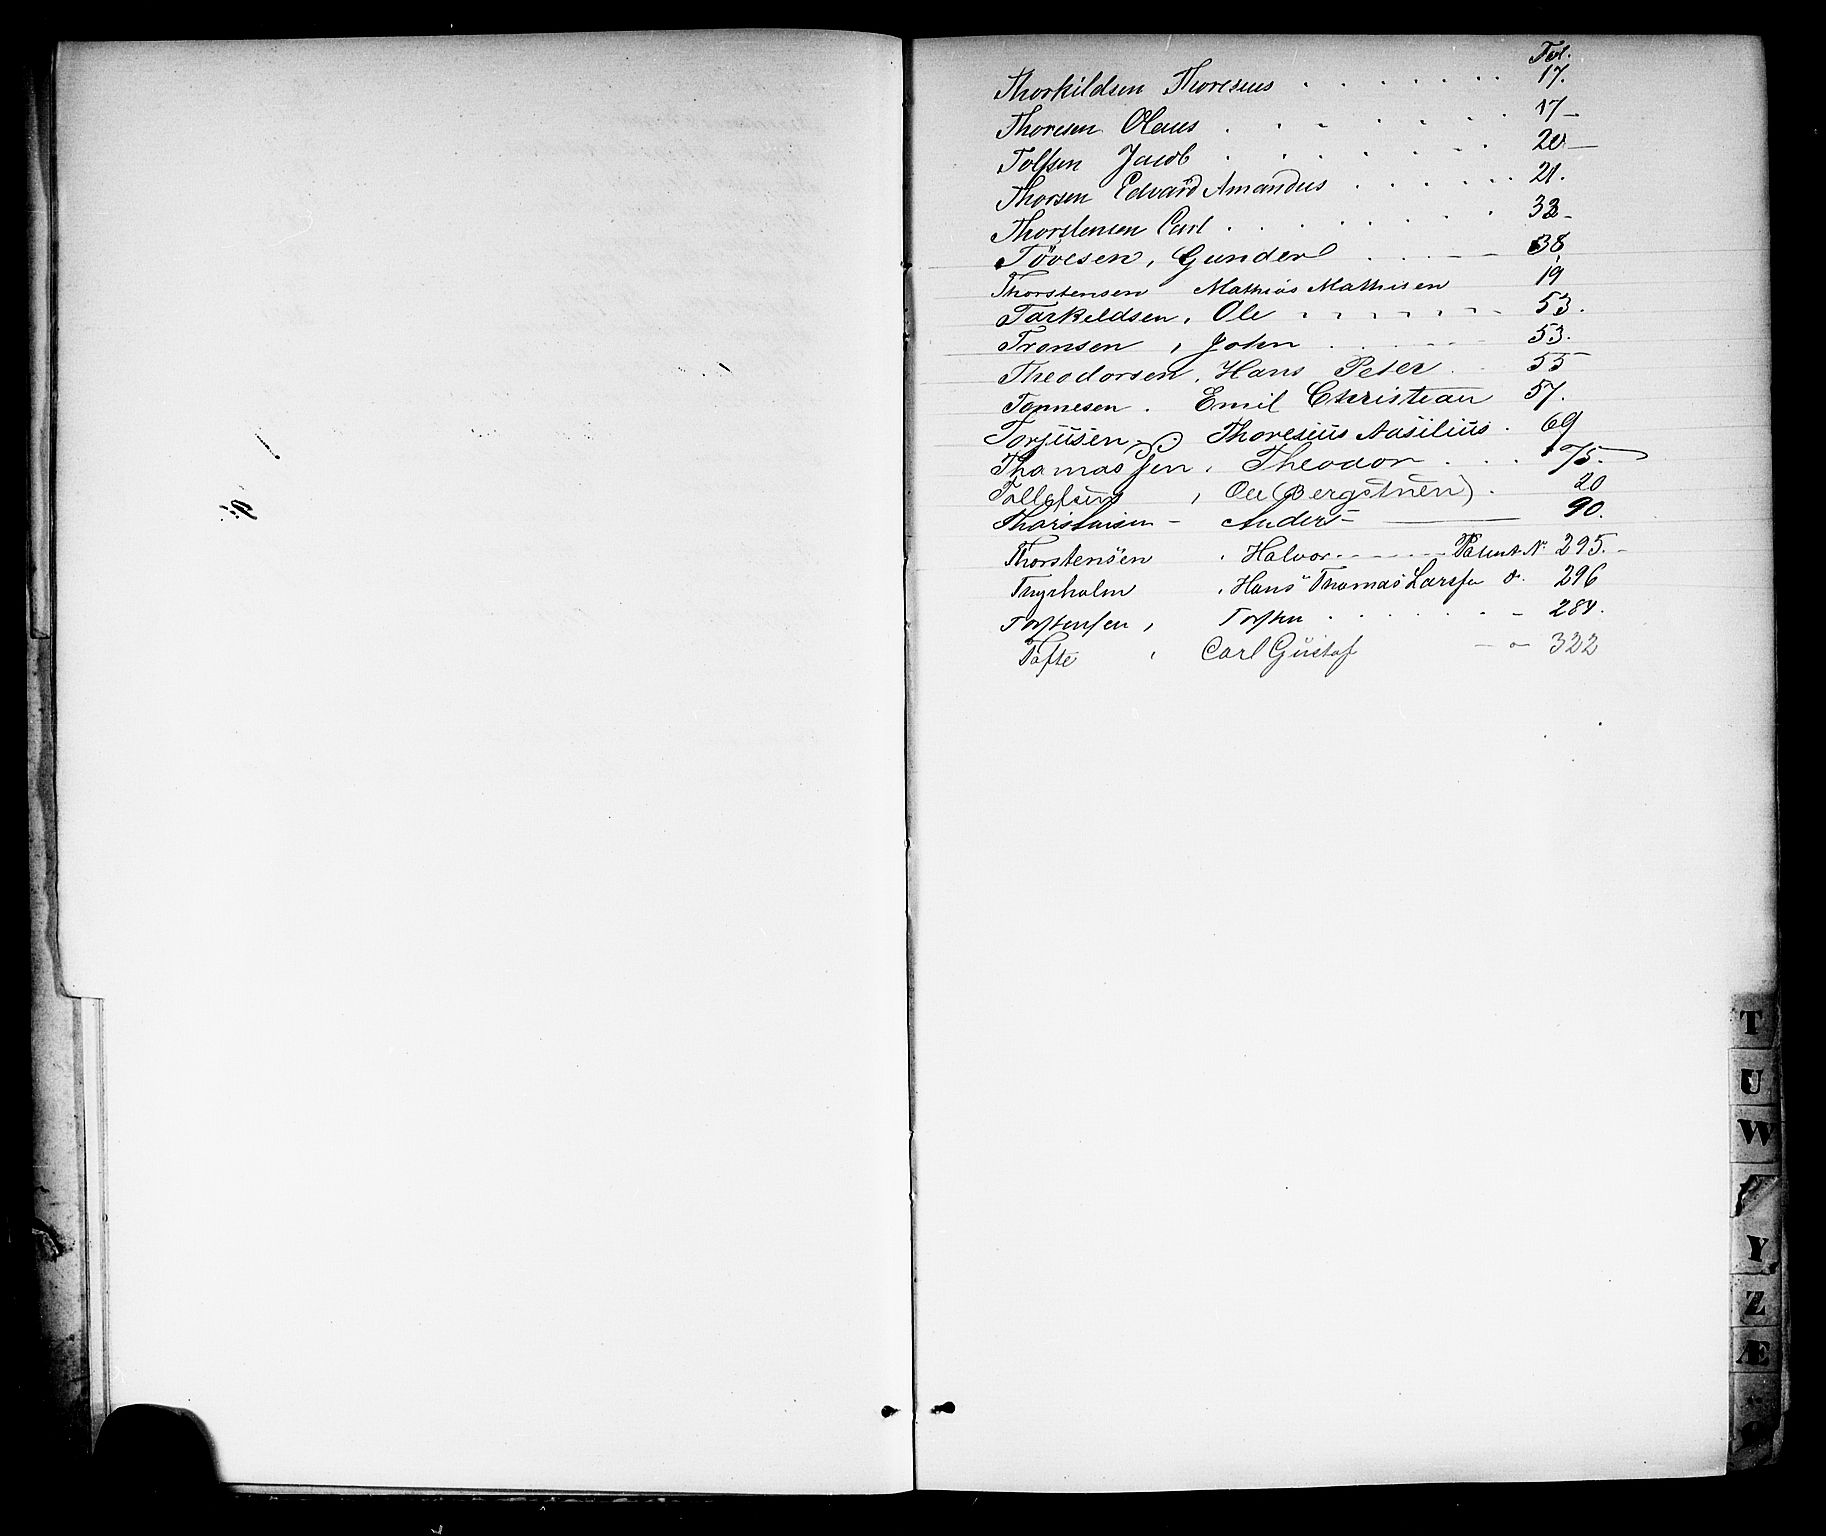 Fol.
Thorkildsen Thoresius . . . . . . . 17.
Thoresen Olaus . . . . . . . 17-
Tolfsen Jacob . . . . . . . 20-
Thorsen Edvard Amandus . . . . . . 21.
Thorstensen Carl . . . . . . . 32-
Tövesen, Gunder . . . - - 38
Thorstensen Mathias Mathisen 19
Tarkeldsen, Ole . . . . . . . 53.
Tronsen, John . . . . . . 53.
Theodorsen, Hans Peter . . 55
Tonnesen. Emil Christian 57.
Torjusen, Thoresius Aasilius . 69
Thomassen, Theodor . . . 75.
Tollefsen, Ole (Bergstuen). 20
Anders - 90.
Thorstensen, Halvor - - - - - Patent N. 295.-
Thyrholm, Hans Thomas Larsen do. 296
Torstensen, Torsten . . . . . . - 284.
Tofte, Carl Gustaf - o - 322
T
U
W
Y
Z
Æ